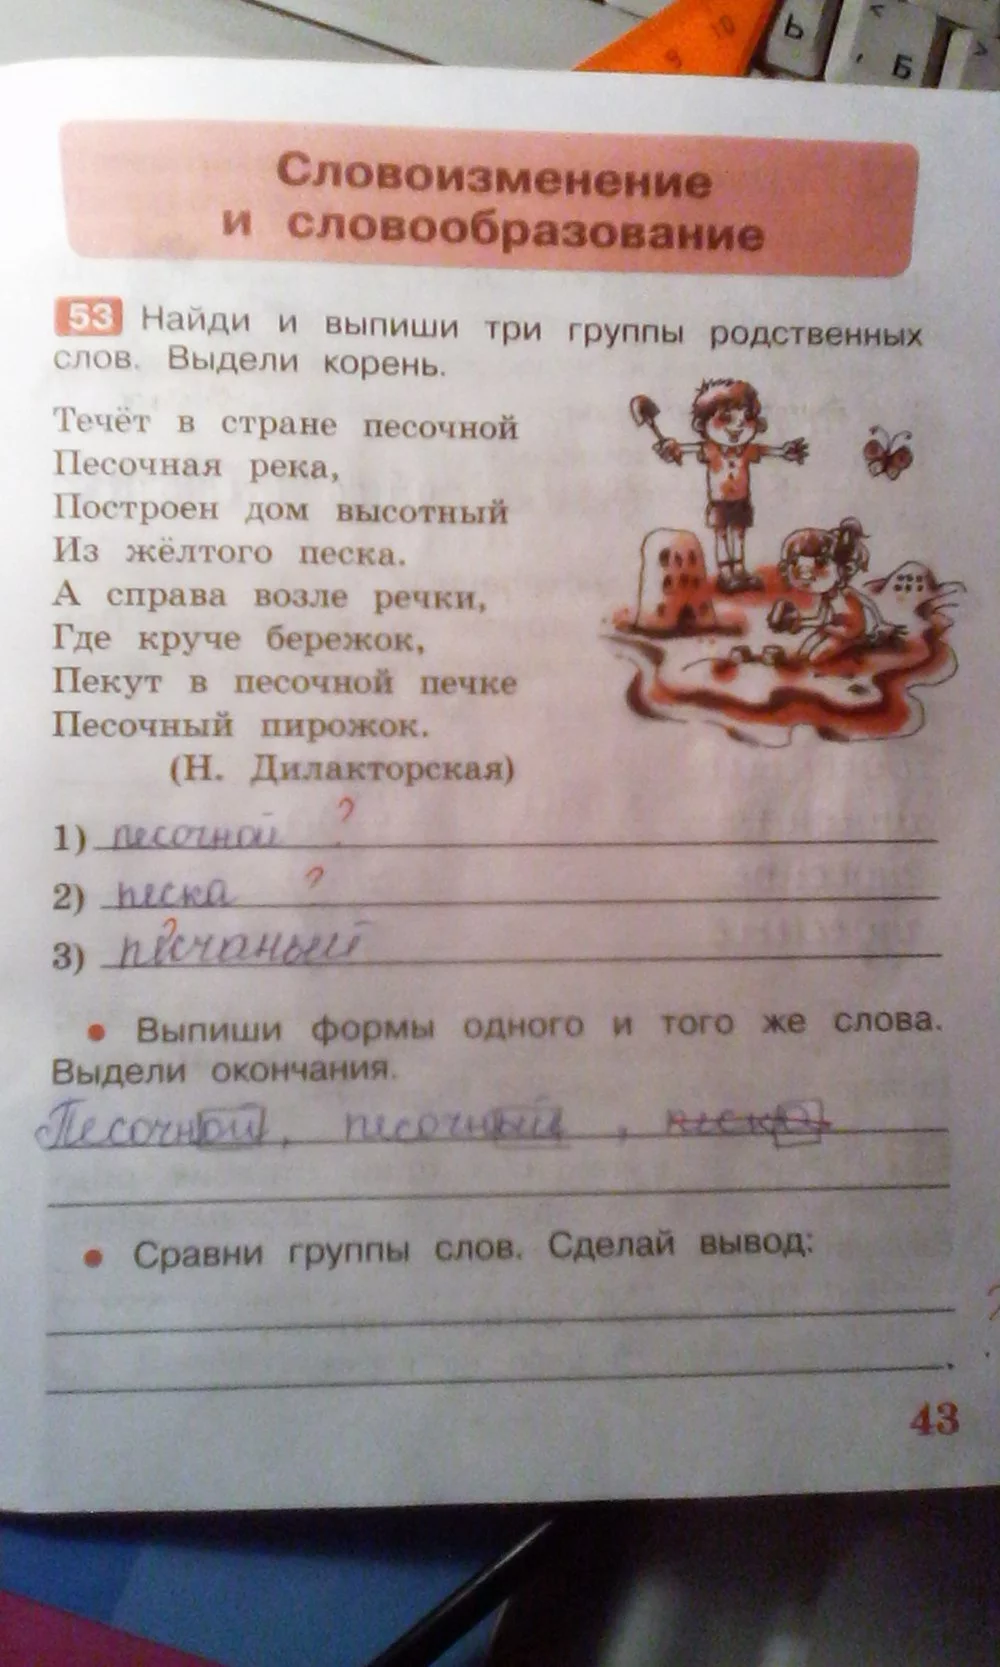 9 10 Ь < , Б >
Словоизменение
и словообразование
53 Найди и выпиши три группы родственных
слов. Выдели корень.
Течёт в стране песочной
Песочная река,
Построен дом высотный
Из жёлтого песка.
А справа возле речки,
Где круче бережок,
Пекут в песочной печке
Песочный пирожок.
(Н. Дилакторская)
1) песочной ?
2) песка ?
3) песчаный ?
• Выпиши формы одного и того же слова.
Выдели окончания.
Песочной, песочный, песка
• Сравни группы слов. Сделай вывод:
?
.
43